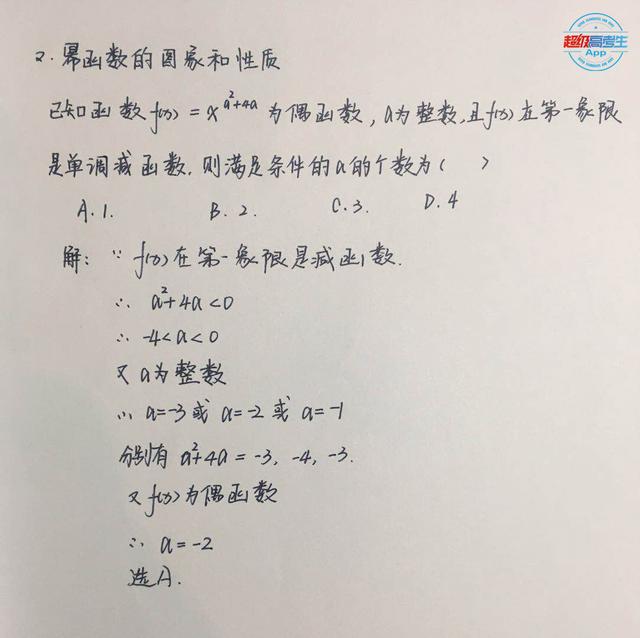 超级高考生
App
2. 幂函数的图象和性质
已知函数f(x)=x^{a²+4a}为偶函数,a为整数,且f(x)在第一象限
是单调减函数,则满足条件的a的个数为( )
A.1. B.2. C.3. D.4
解:∵f(x)在第一象限是减函数.
∴ a²+4a<0
∴ -4<a<0
又a为整数
∴ a=-3或a=-2或a=-1
分别有 a²+4a=-3, -4, -3.
又f(x)为偶函数
∴ a=-2
选A.